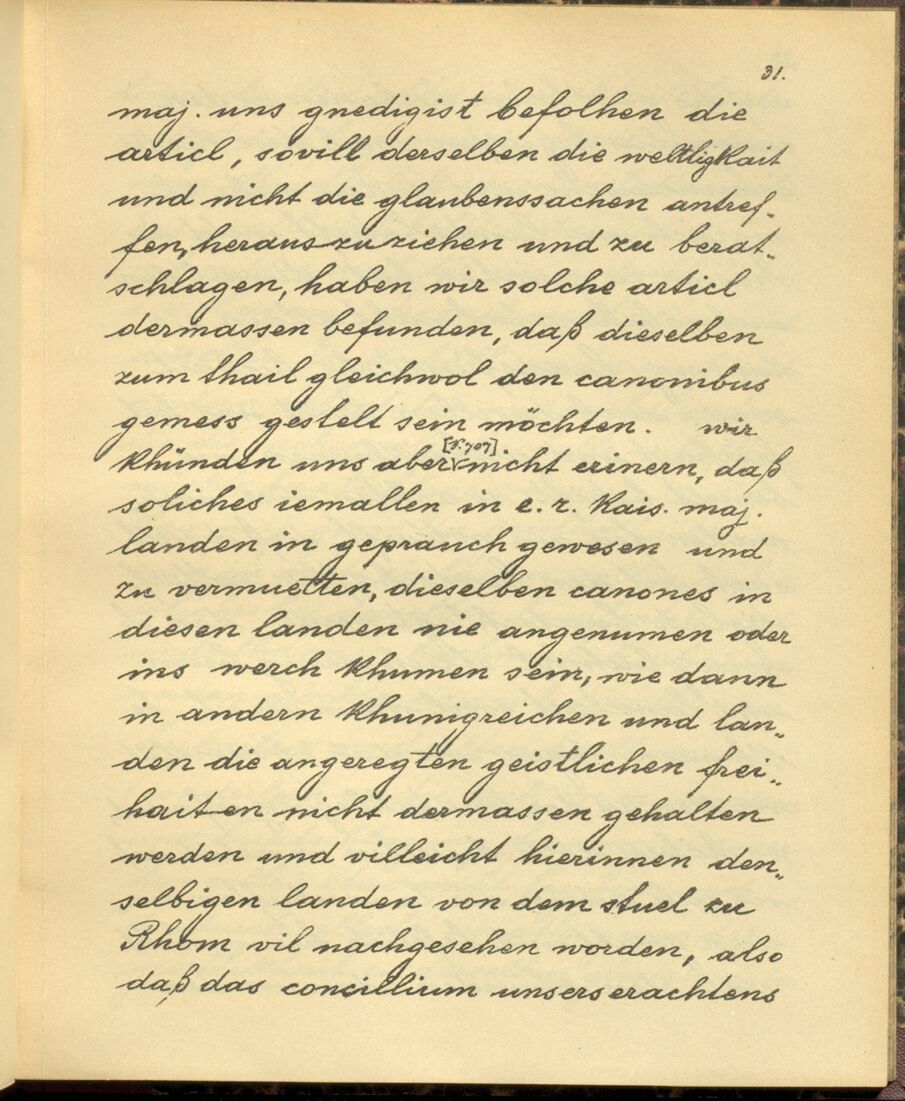 31.
maj. uns gnedigist befolhen die
articl, sovill derselben die weltligkait
und nicht die glaubenssachen antref„
fen, herauszuziehen und zu berat„
schlagen, haben wir solche articl
dermassen befunden, daß dieselben
zum thail gleichwol den canonibus
gemess gestelt sein möchten. wir
[S. 707]
khünden uns aber nicht erinern, daß
soliches iemallen in e. r. kais. maj.
landen in geprauch gewesen und
zu vermuetten, dieselben canones in
diesen landen nie angenumen oder
ins werch khumen sein, wie dann
in andern khunigreichen und lan„
den die angeregten geistlichen frei„
haiten nicht dermassen gehalten
werden und villeicht hierinnen den„
selbigen landen von dem stuel zu
Rhom vil nachgesehen worden, also
daß das concillium unsers erachtens